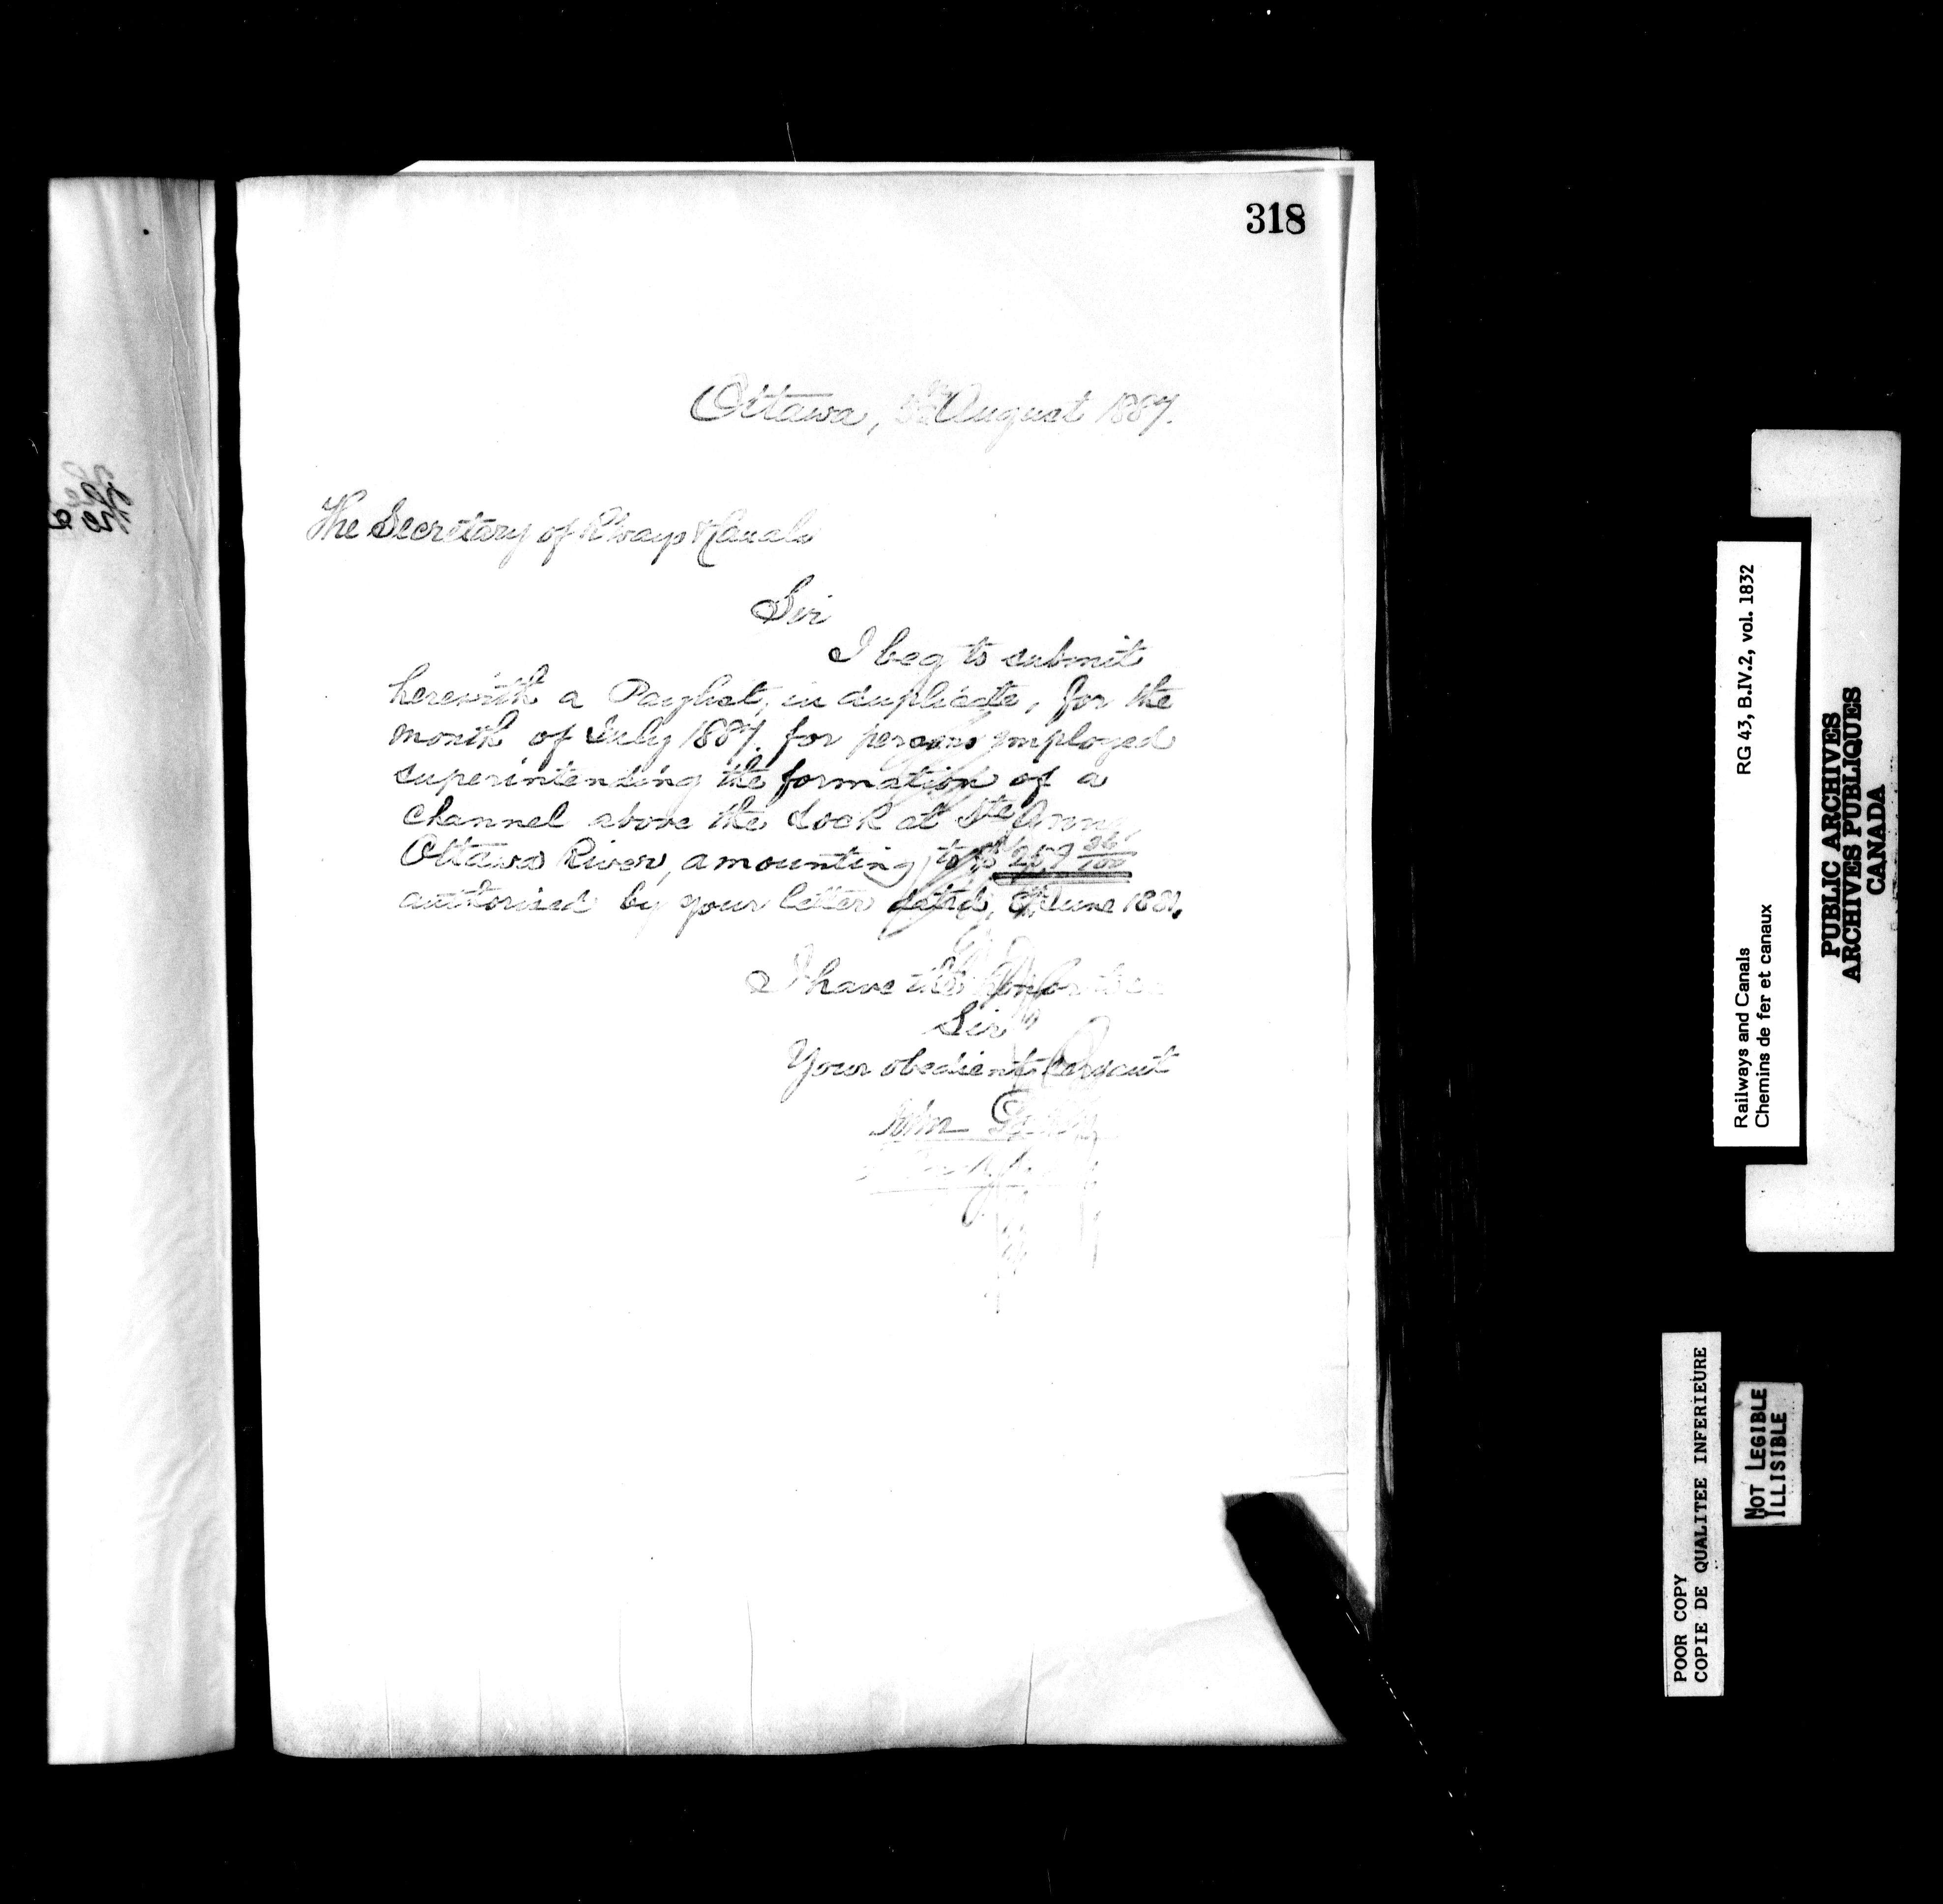 318
Ottawa, August 1887.
The Secretary of R'ways & Canals
Sir
I beg to submit
herewith a Paylist, in duplicate, for the
month of July 1887. for persons employed
superintending the formation of a
channel above the Lock at Ste Anne,
Ottawa River, amounting to $ 257
authorised by your letter dated, June 188
I have the honor to be
Sir
Your obedient Servant
John
Railways and Canals RG 43, B.IV.2, vol. 1832
Chemins de fer et canaux
PUBLIC ARCHIVES
ARCHIVES PUBLIQUES
CANADA
POOR COPY
COPIE DE QUALITEE INFERIEURE
NOT LEGIBLE
ILLISIBLE